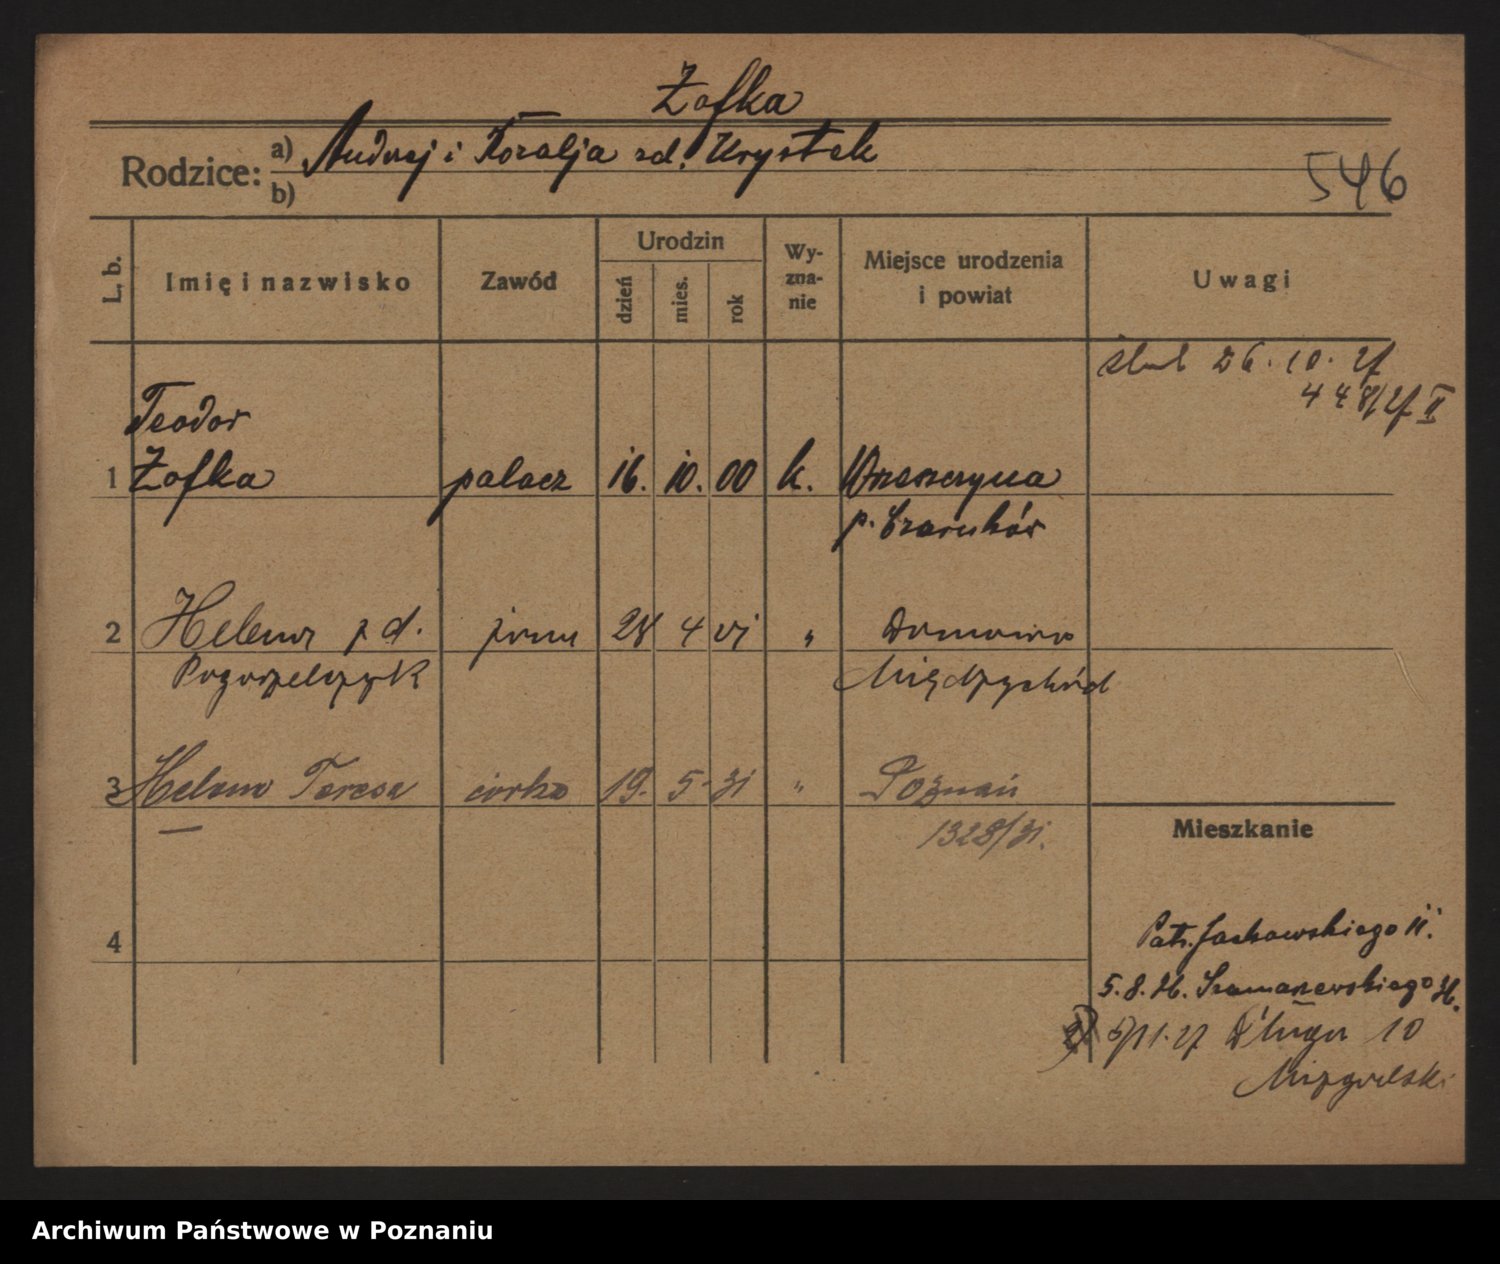 Żofka
Rodzice: a) Andrzej i Rozalja zd. Krystek
b)
546
L. b.
Imię i nazwisko
Zawód
Urodzin
dzień
mies.
rok
Wy-
zna-
nie
Miejsce urodzenia
i powiat
Uwagi
ślub 26. 10. 27
448/27 II
Teodor
1 Żofka palacz 16. 10. 00 k. Wrzeszczyna
p. Czarnków
2 Helena z d. żona 28 4 01 "
Pogorzelczyk Międzychód
3 Helena Teresa córka 19. 5. 31 " Poznań
1328/31.
Mieszkanie
4
Patr. Jackowskiego 11.
5.8.26. Szamarzewskiego 36.
5/11.27 Długa 10